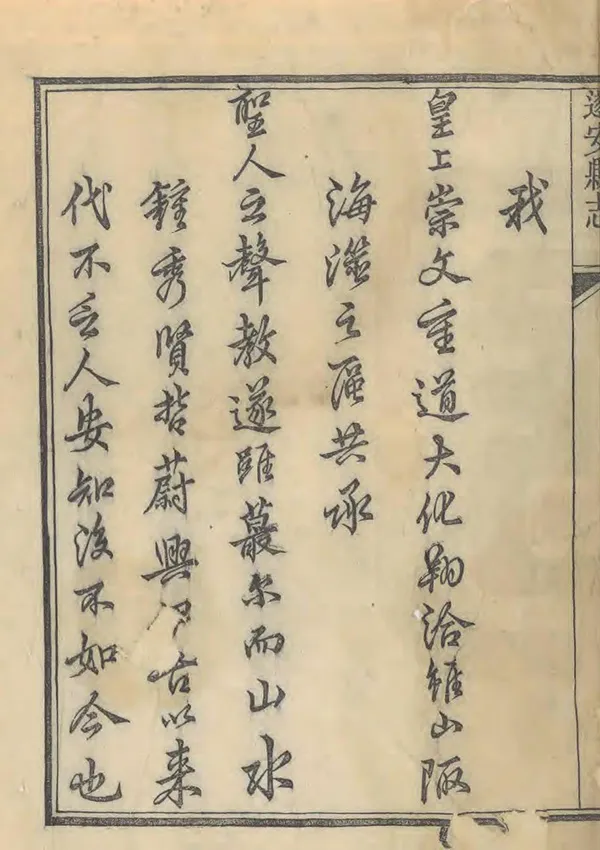 遂安縣志
我
皇上崇文重道大化翔洽雖山陬
海澨之區共承
聖人之聲教遂雖蕞尔而山水
鍾秀賢哲蔚興伊古以来
代不乏人安知後不如今也